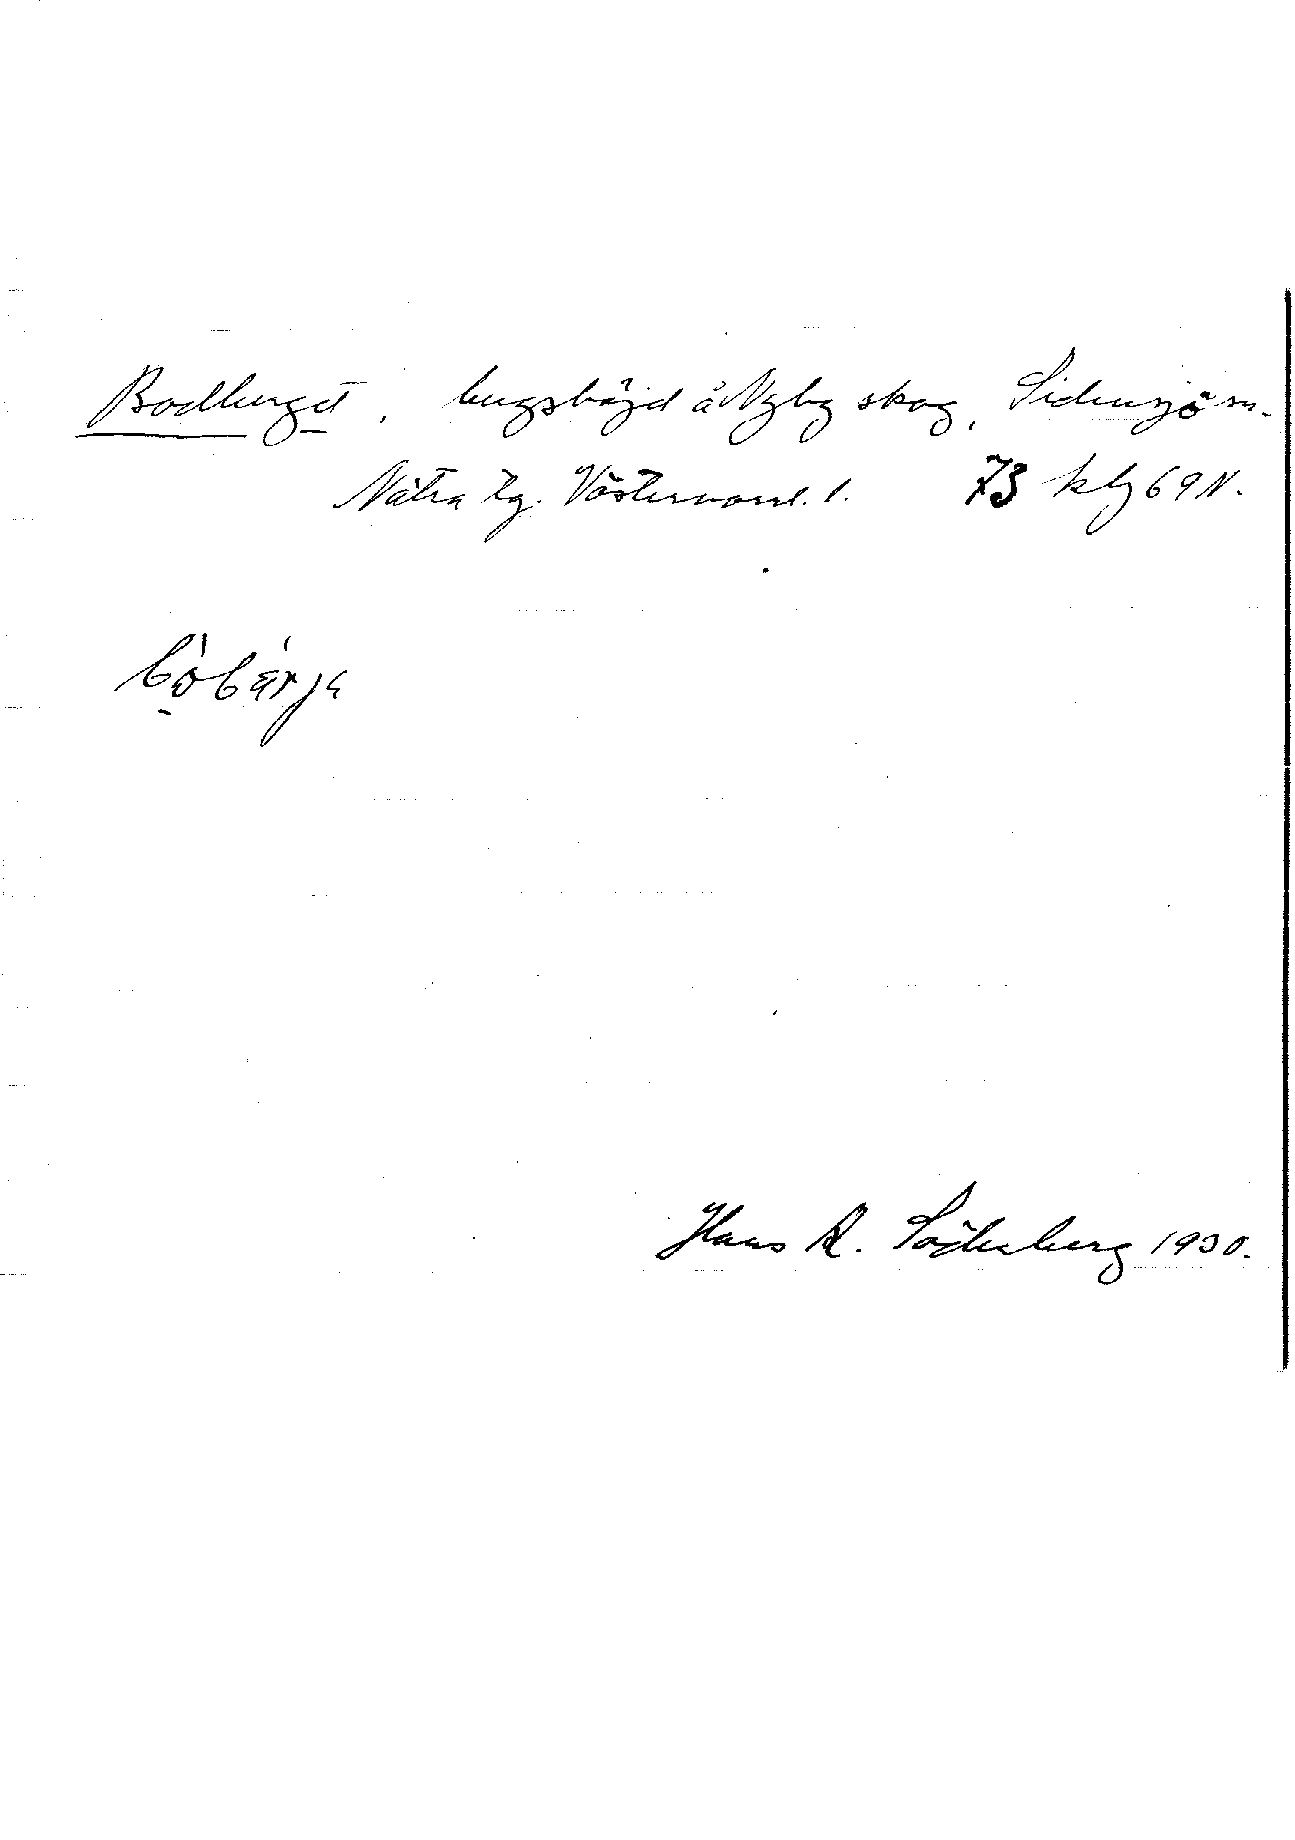 Bodberget, bergshöjd å Nyby skog, Sidensjö sn.
Nätra tg. Västernorrl. l. 73 kbl 69 N.
Hans R. Söderberg 1930.